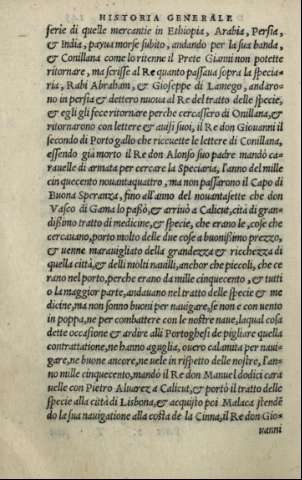 HISTORIA GENERALE
ferie di quelle mercantie in Ethiopia, Arabia, Persia,
& India, payua morse subito, andando per la sua banda,
& Conillana come lo ritenne il Prete Gianni non potette
ritornare, ma scrisse al Re quanto passaua sopra la specia-
ria, Rabi Abraham, & Gioseppe di Lamego, andaro-
no in persia & dettero nuoua al Re del tratto delle specie,
& egli gli fece ritornare perche cercassero di Onillana, &
ritornarono con lettere & auisi suoi, il Re don Giouanni il
secondo di Portogallo che riceuette le lettere di Conillana,
essendo già morto il Re don Alonso suo padre mandò ca-
rauelle di armata per cercare la Speciaria, l'anno del mille
cinquecento nouantaquattro, ma non passarono il Capo di
Buona Speranza, fino all'anno del nouantasette che don
Vasco di Gama lo passò, & arriuò a Calicut, cità di gran-
dissimo tratto di medicine, & specie, che erano le cose che
cercauano, porto molto delle due cose a buonissimo prezzo,
& uenne marauigliato della grandezza & ricchezza di
quella città, & delli molti nauili, anchor che piccoli, che ce
rano nel porto, perche erano da mille cinquecento, & tutti
o la maggior parte, andauano nel tratto delle specie & me
dicine, ma non sonno buoni per nauigare, se non è con uento
in poppa, ne per combattere con le nostre naue, laqual cosa
dette occasione & ardire alli Portoghesi de pigliare quella
contrattatione, ne hanno aguglia, ouero calamita per naui-
gare, ne buone ancore, ne uele in rispetto delle nostre, l'an-
no mille cinquecento, mandò il Re don Manuel dodici cara
uelle con Pietro Aluarez a Calicut, & portò il tratto delle
specie alla città di Lisbona, & acquisto poi Malaca stendē
do la sua nauigatione alla costa de la Cinna, il Re don Gio-
uanni